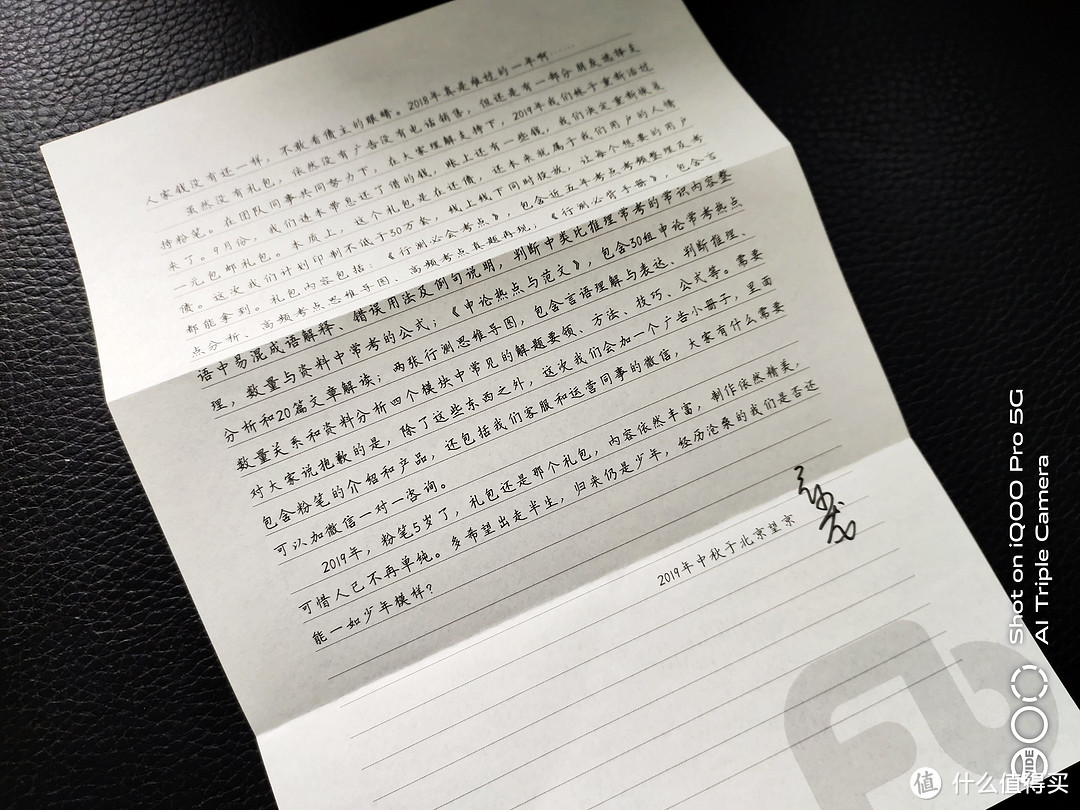 人家钱没有还一样，不敢看债主的眼睛。2018年真是难过的一年啊……
虽然没有礼包，依然没有广告没有电话销售，但还是有一部分朋友选择支
持粉笔。在团队同事共同努力下，在大家理解支持下，2019年我们终于重新活过
来了。9月份，我们连本带息还了借的钱，账上还有一些钱，我们决定重新恢复
一元包邮礼包。本质上，这个礼包是在还债，还本来就属于我们用户的人情
债。这次我们计划印制不低于30万套，线上线下同时投放，让每个想要的用户
都能拿到。礼包内容包括：《行测必会考点》，包含近五年考点考频整理及考
点分析、高频考点思维导图、高频考点真题再现；《行测必背手册》，包含言
语中易混成语解释、错误用法及例句说明，判断中类比推理常考的常识内容整
理，数量与资料中常考的公式；《申论热点与范文》，包含30组申论常考热点
分析和20篇文章解读；两张行测思维导图，包含言语理解与表达、判断推理、
数量关系和资料分析四个模块中常见的解题要领、方法、技巧、公式等。需要
对大家说抱歉的是，除了这些东西之外，这次我们会加一个广告小册子，里面
包含粉笔的介绍和产品，还包括我们客服和运营同事的微信，大家有什么需要
可以加微信一对一咨询。
2019年，粉笔5岁了，礼包还是那个礼包，内容依然丰富，制作依然精美，
可惜人已不再单纯。多希望出走半生，归来仍是少年，经历沧桑的我们是否还
能一如少年模样？
2019年中秋于北京望京
Shot on iQOO Pro 5G
AI Triple Camera
值 什么值得买